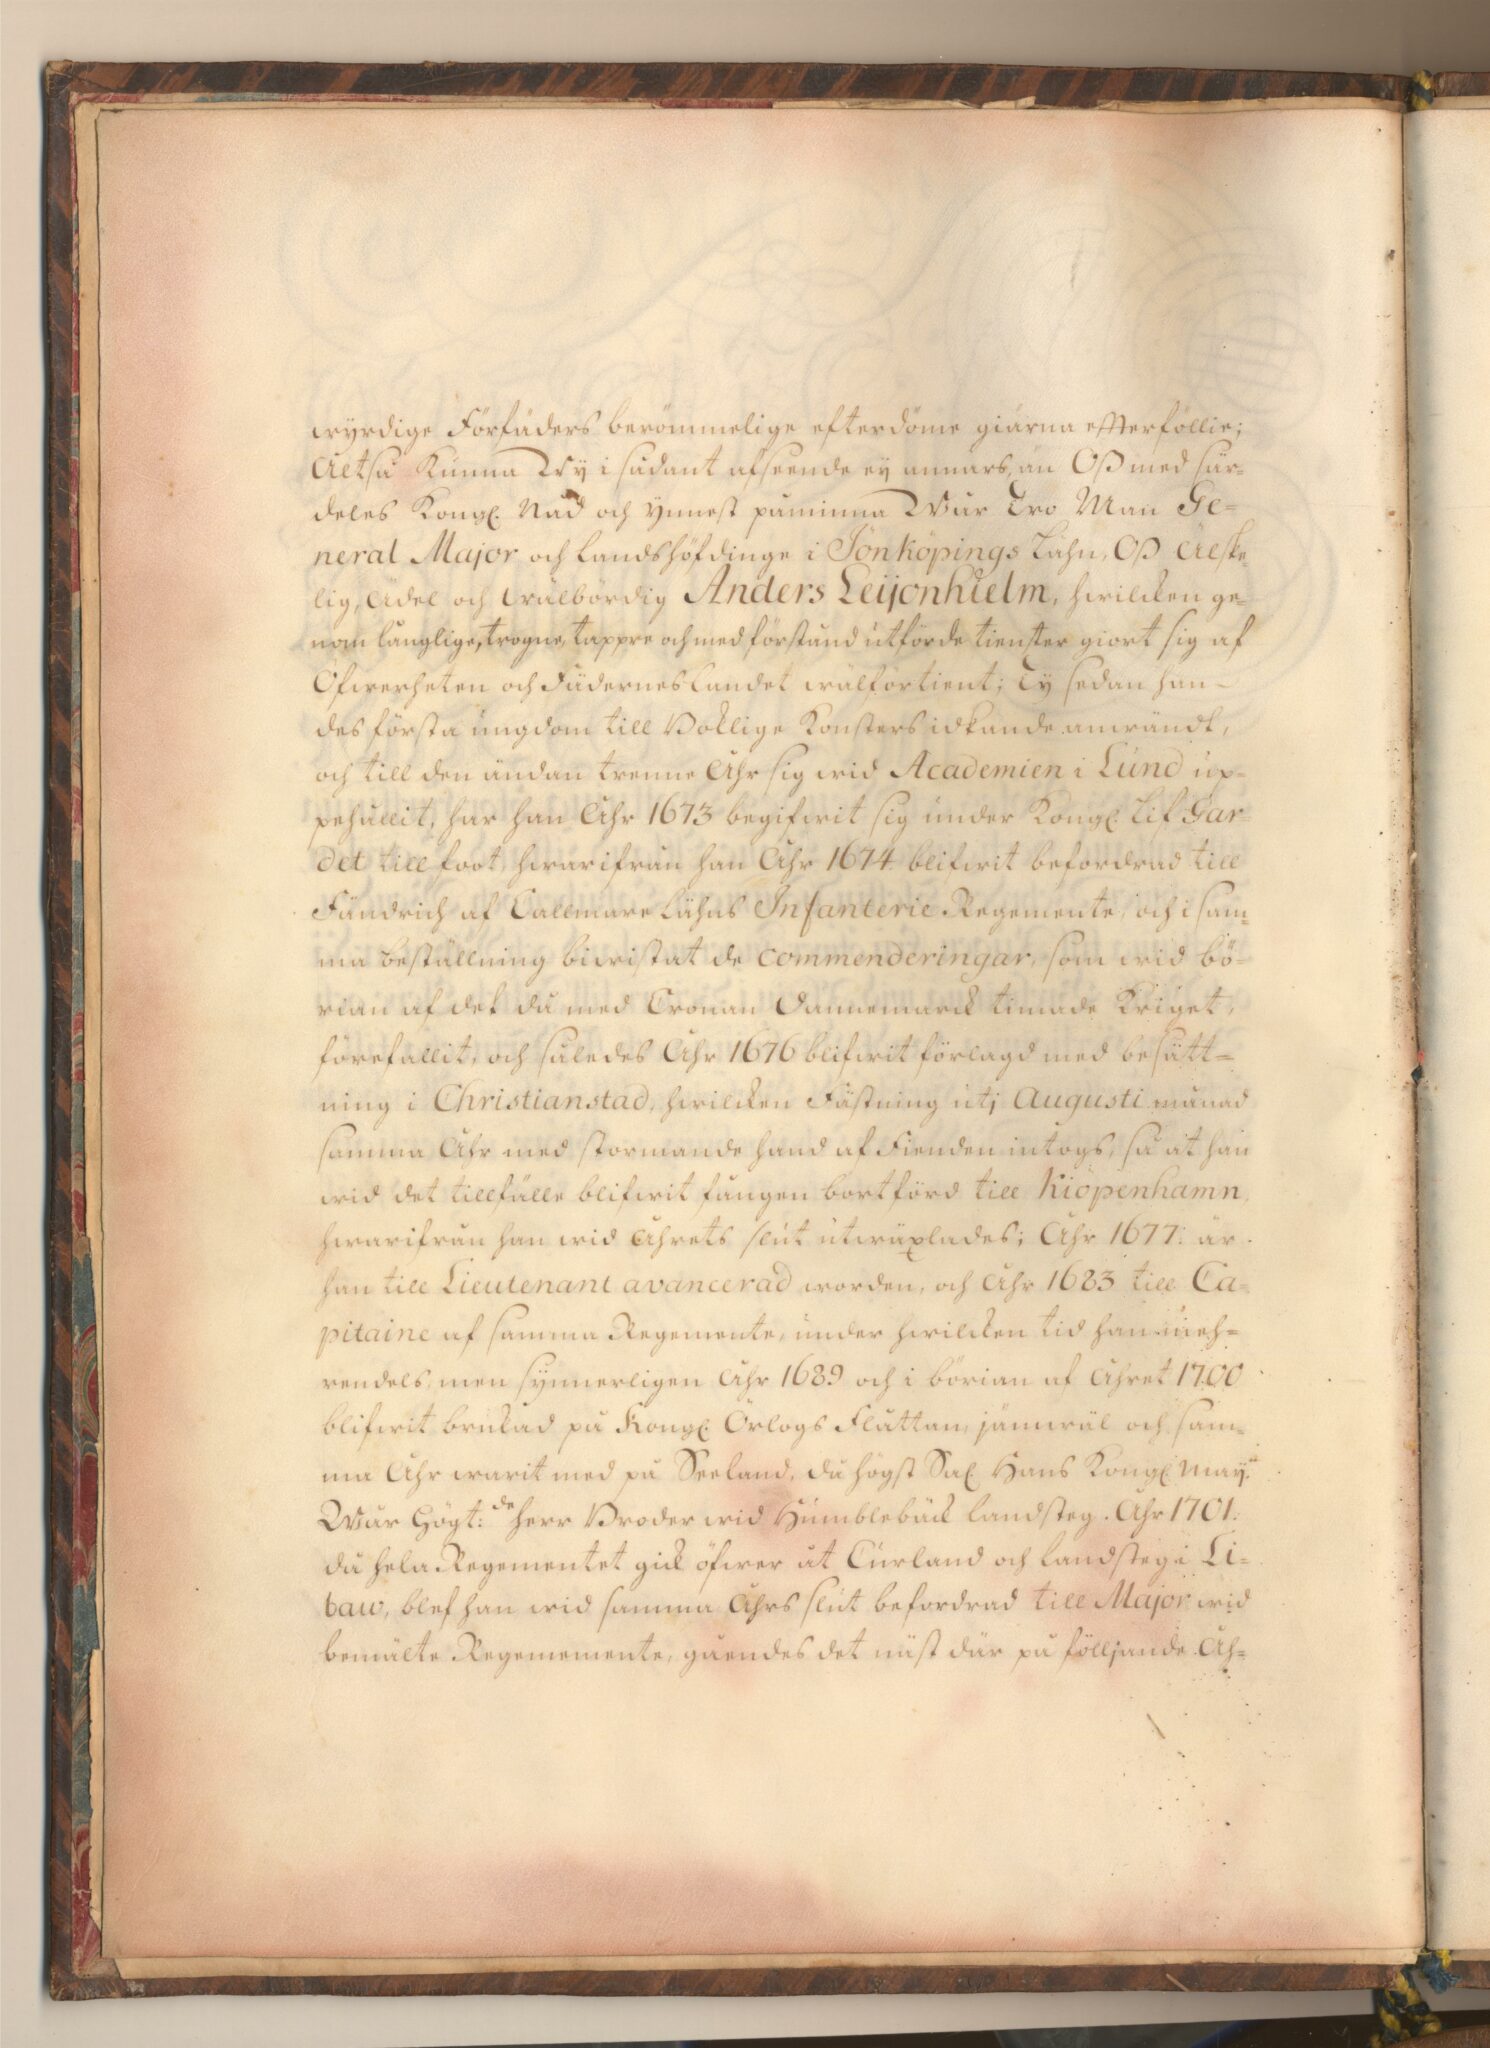 wyrdige Förfäders berömmelige efterdöme giärna effterföllie;
Altså kunna Wy i sådant afseende ey annars, än Oß med sär-
deles Kongl. Nåd och ynnest påminna Wår Tro Man Ge-
neral Major och Landshöfdinge i Jönköpings Lähn, Oß Älske-
lig, Ädel och Wälbördig Anders Leijonhielm, hwilcken ge-
nom långlige, trogne, tappre och med förstånd utförde tienster giort sig af
Öfwerheten och Fäderneslandet wälförtient; Ty sedan han
des första ungdom till Boklige Konsters idkande anwändt,
och till den ändan trenne Åhr sig wid Academien i Lund up-
pehållit, har han Åhr 1673 begifwit sig under Kongl. Lif Gar-
det till foot, hwarifrån han Åhr 1674 blifwit befordrad till
Fändrich af Callmare Lähns Infanterie Regemente, och i sam-
ma beställning biwistat de commenderingar, som wid bö-
rian af det då med Cronan Dannemarck timade Kriget,
förefallit, och således Åhr 1676 blifwit förlagd med besätt-
ning i Christianstad, hwilcken Fästning uti Augusti månad
samma Åhr med stormande hand af Fienden intogs, så at han
wid det tillfälle blifwit fången bortförd till Kiöpenhamn,
hwarifrån han wid Åhrets slut utwäxlades; Åhr 1677: är
han till Lieutenant avancerad worden, och Åhr 1683 till Ca-
pitaine af samma Regemente, under hwilcken tid han meh-
rendels, men synnerligen Åhr 1689 och i börian af Åhret 1700
blifwit brukad på Kongl. Örlogs Flåttan, jämwäl och sam-
ma Åhr warit med på Seeland, då högst Sal. Hans Kongl. May:t
Wår Högt:de herr Broder wid Humblebäck landsteg. Åhr 1701.
då hela Regementet gick öfwer åt Curland och landsteg i Li-
bau, blef han wid samma Åhrs slut befordrad till Major wid
bemälte Regemente, gåendes det näst där på fölljande Åh-